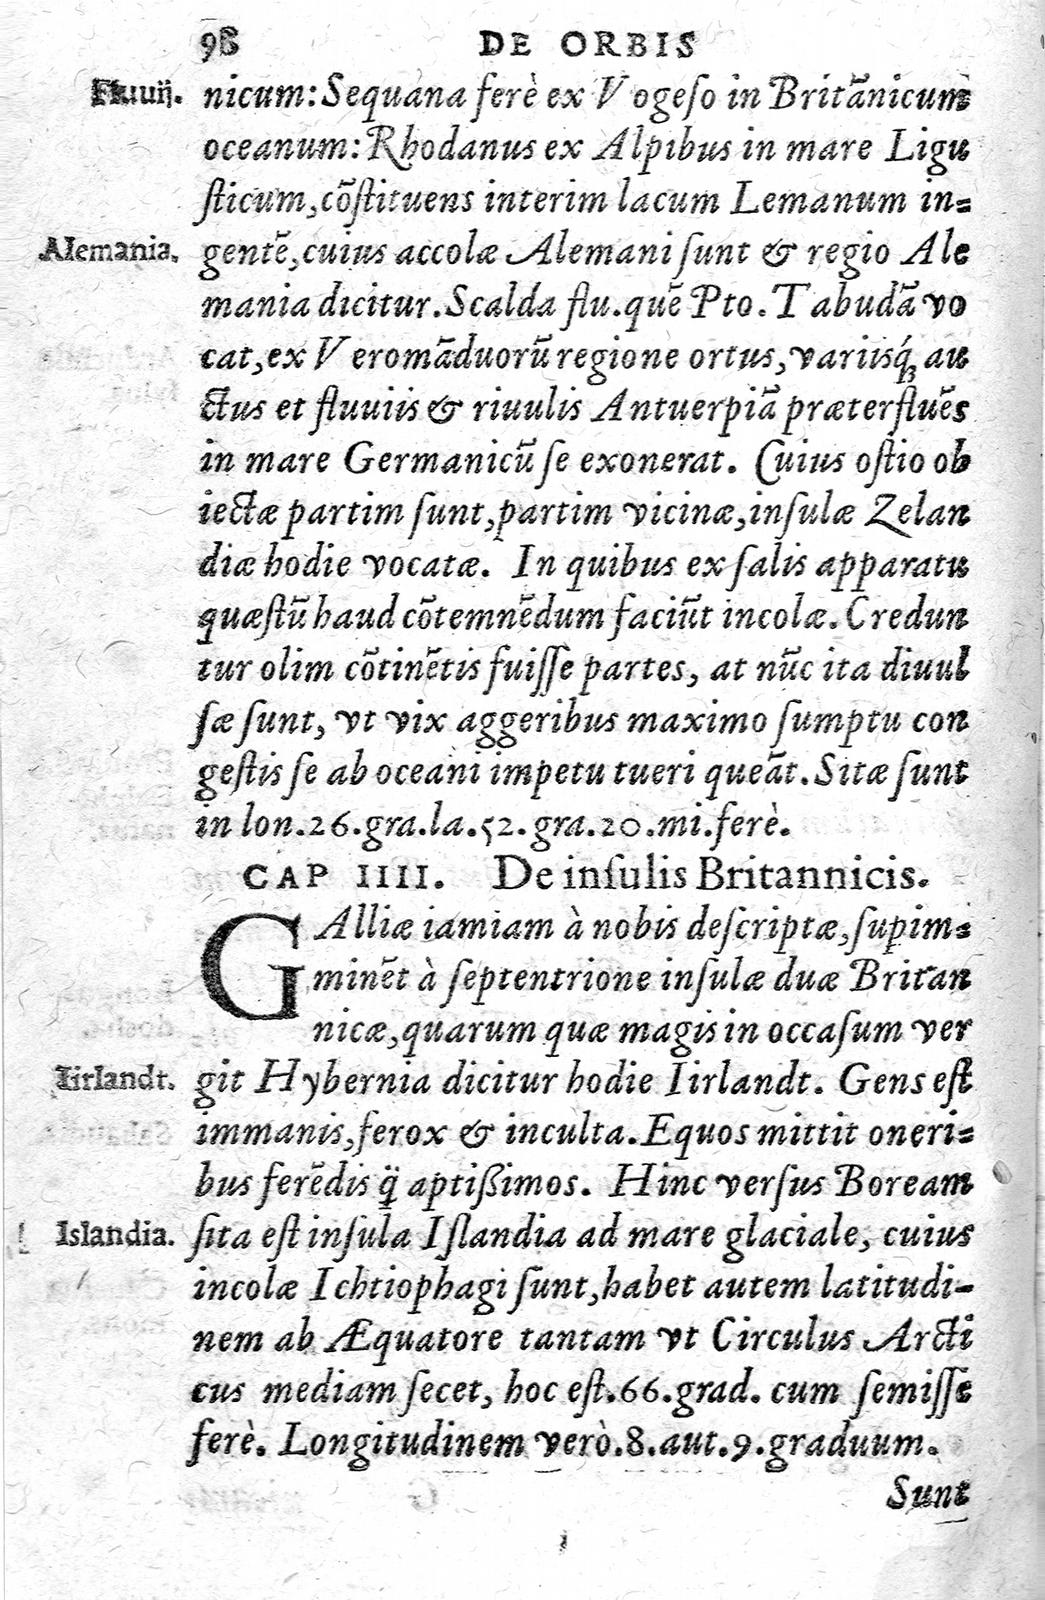 98 DE ORBIS
Fluuij. nicum: Sequana ferè ex Vogeso in Britānicum
oceanum: Rhodanus ex Alpibus in mare Ligu
sticum, cōstituens interim lacum Lemanum in=
Alemania. gentē, cuius accolæ Alemani sunt & regio Ale
mania dicitur. Scalda flu. quē Pto. Tabudā vo
cat, ex Veromāduorū regione ortus, variisq́; au
ctus et fluuiis & riuulis Antuerpiā præterfluēs
in mare Germanicū se exonerat. Cuius ostio ob
iectæ partim sunt, partim vicinæ, insulæ Zelan
diæ hodie vocatæ. In quibus ex salis apparatu
quæstū haud cōtemnēdum faciūt incolæ. Credun
tur olim cōtinētis fuisse partes, at nūc ita diuul
sæ sunt, vt vix aggeribus maximo sumptu con
gestis se ab oceani impetu tueri queāt. Sitæ sunt
in lon. 26. gra. la. 52. gra. 20. mi. ferè.
CAP IIII. De insulis Britannicis.
GAlliæ iamiam à nobis descriptæ, supim=
minēt à septentrione insulæ duæ Britan
nicæ, quarum quæ magis in occasum ver
Iirlandt. git Hybernia dicitur hodie Iirlandt. Gens est
immanis, ferox & inculta. Equos mittit oneri=
bus ferēdis q̃ aptißimos. Hinc versus Boream
Islandia. sita est insula Islandia ad mare glaciale, cuius
incolæ Ichtiophagi sunt, habet autem latitudi-
nem ab Æquatore tantam vt Circulus Arcti
cus mediam secet, hoc est. 66. grad. cum semisse
ferè. Longitudinem verò. 8. aut. 9. graduum.
Sunt